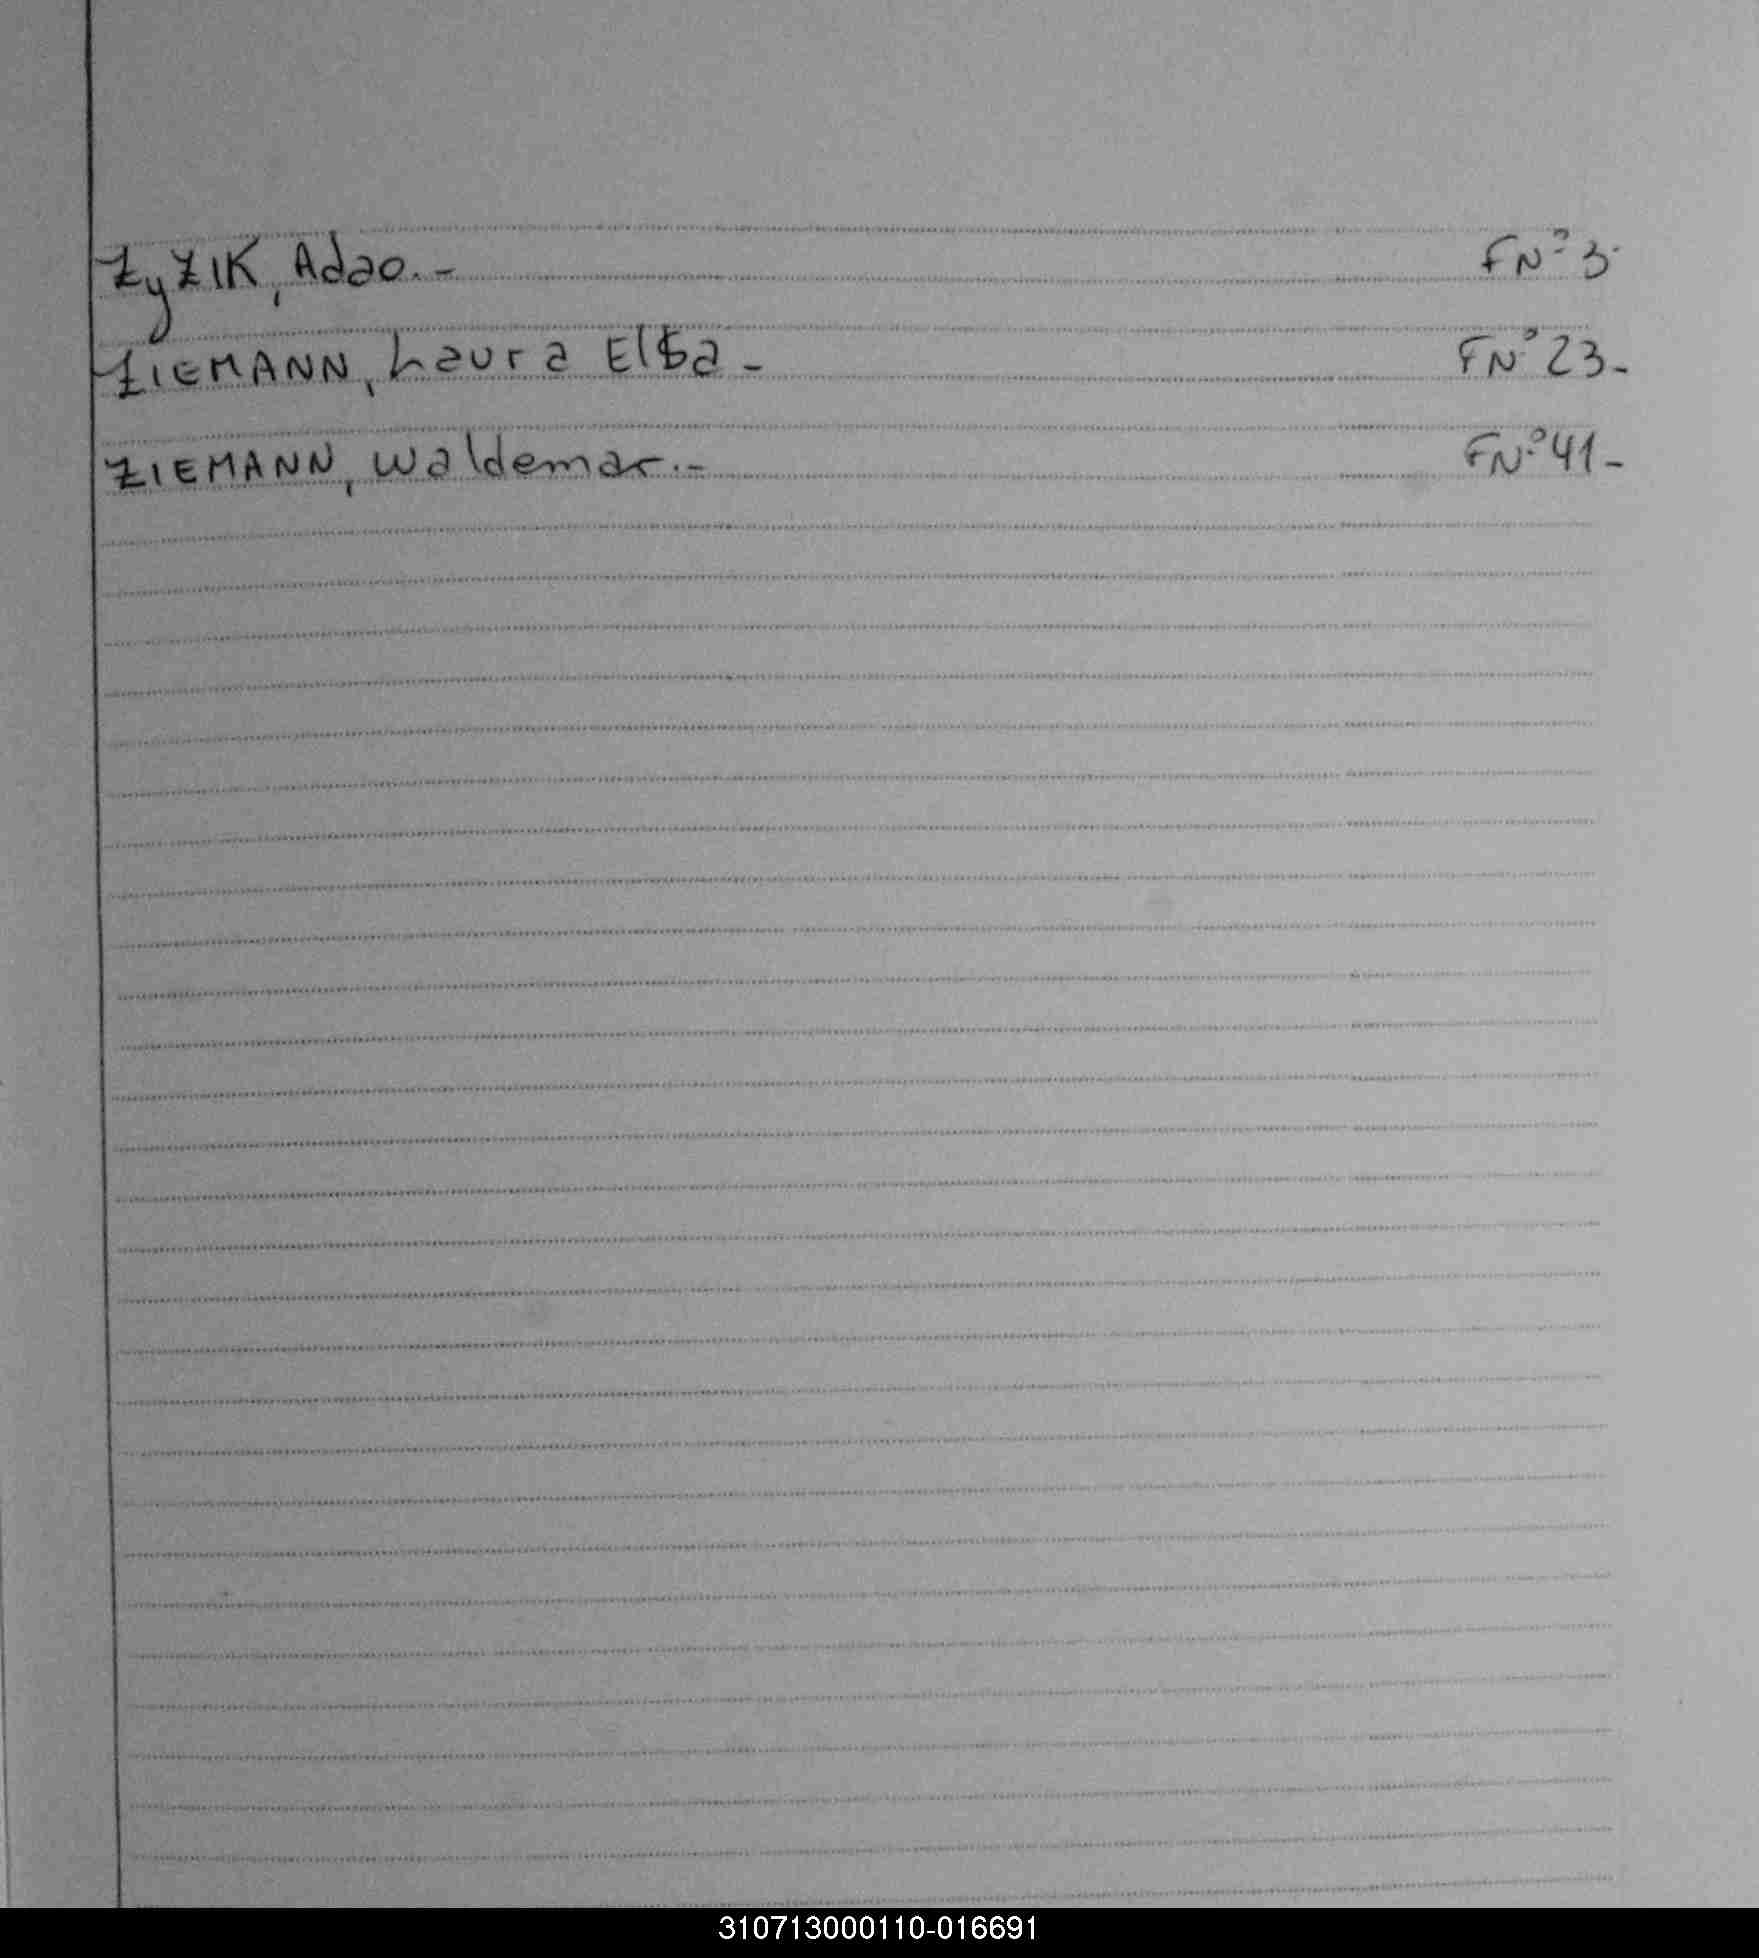 ZyZIK, Adao.- FNº3.
ZIEMANN, Laura Elsa - FNº23-
ZIEMANN, Waldemar.- FNº41-
310713000110-016691